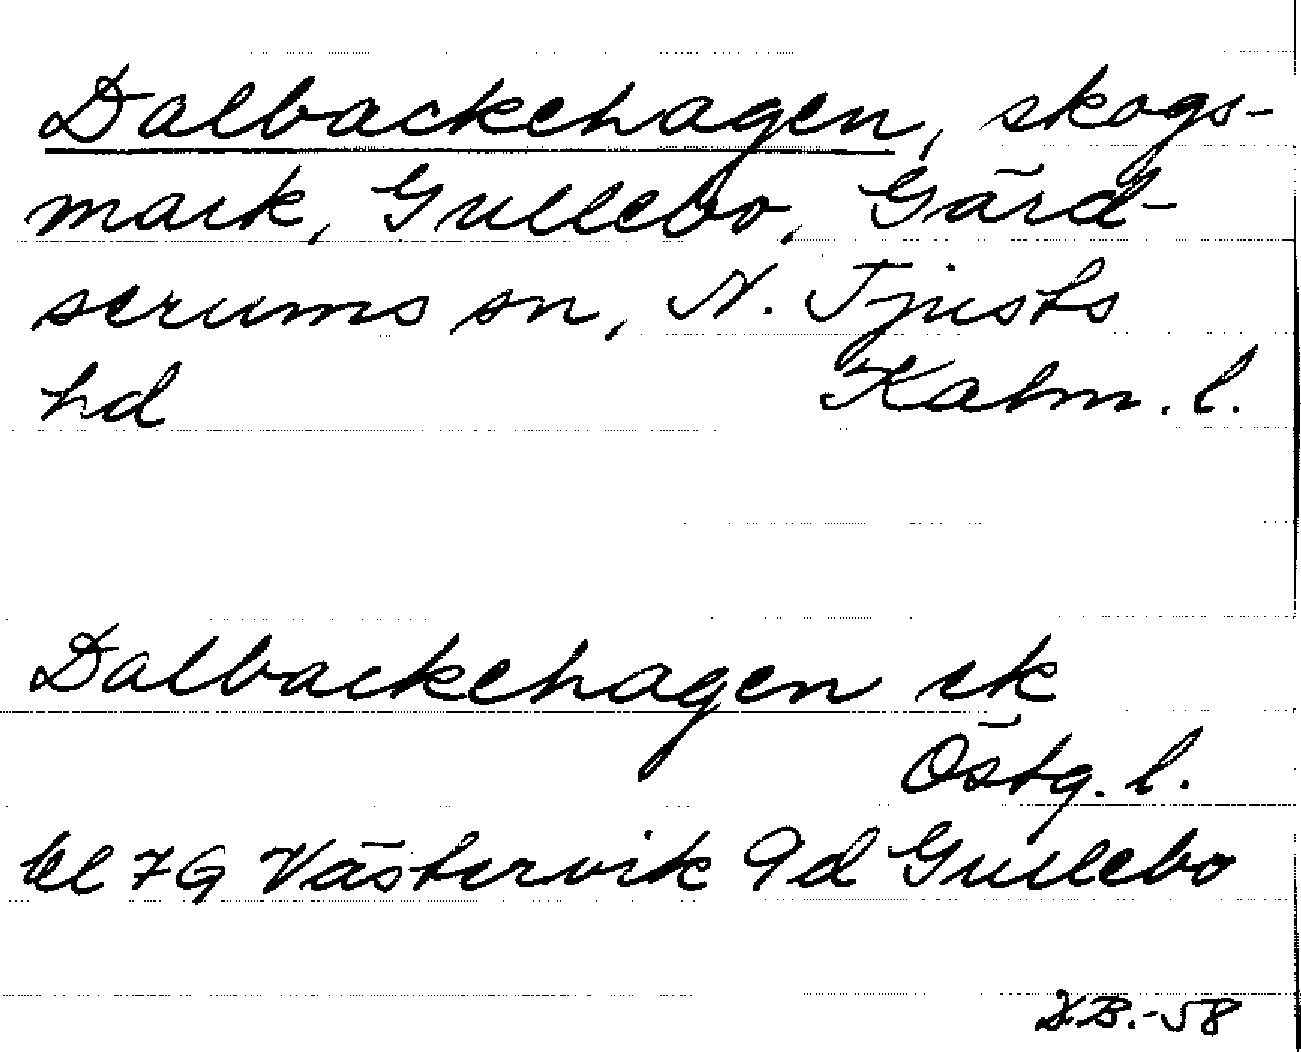 Dalbackehagen, skogs-
mark, Gullebo, Gärd-
serums sn, N. Tjusts
hd Kalm. l.
Dalbackehagen sk
Östg. l.
bl 7G Västervik 9d Gullebo
B.-58